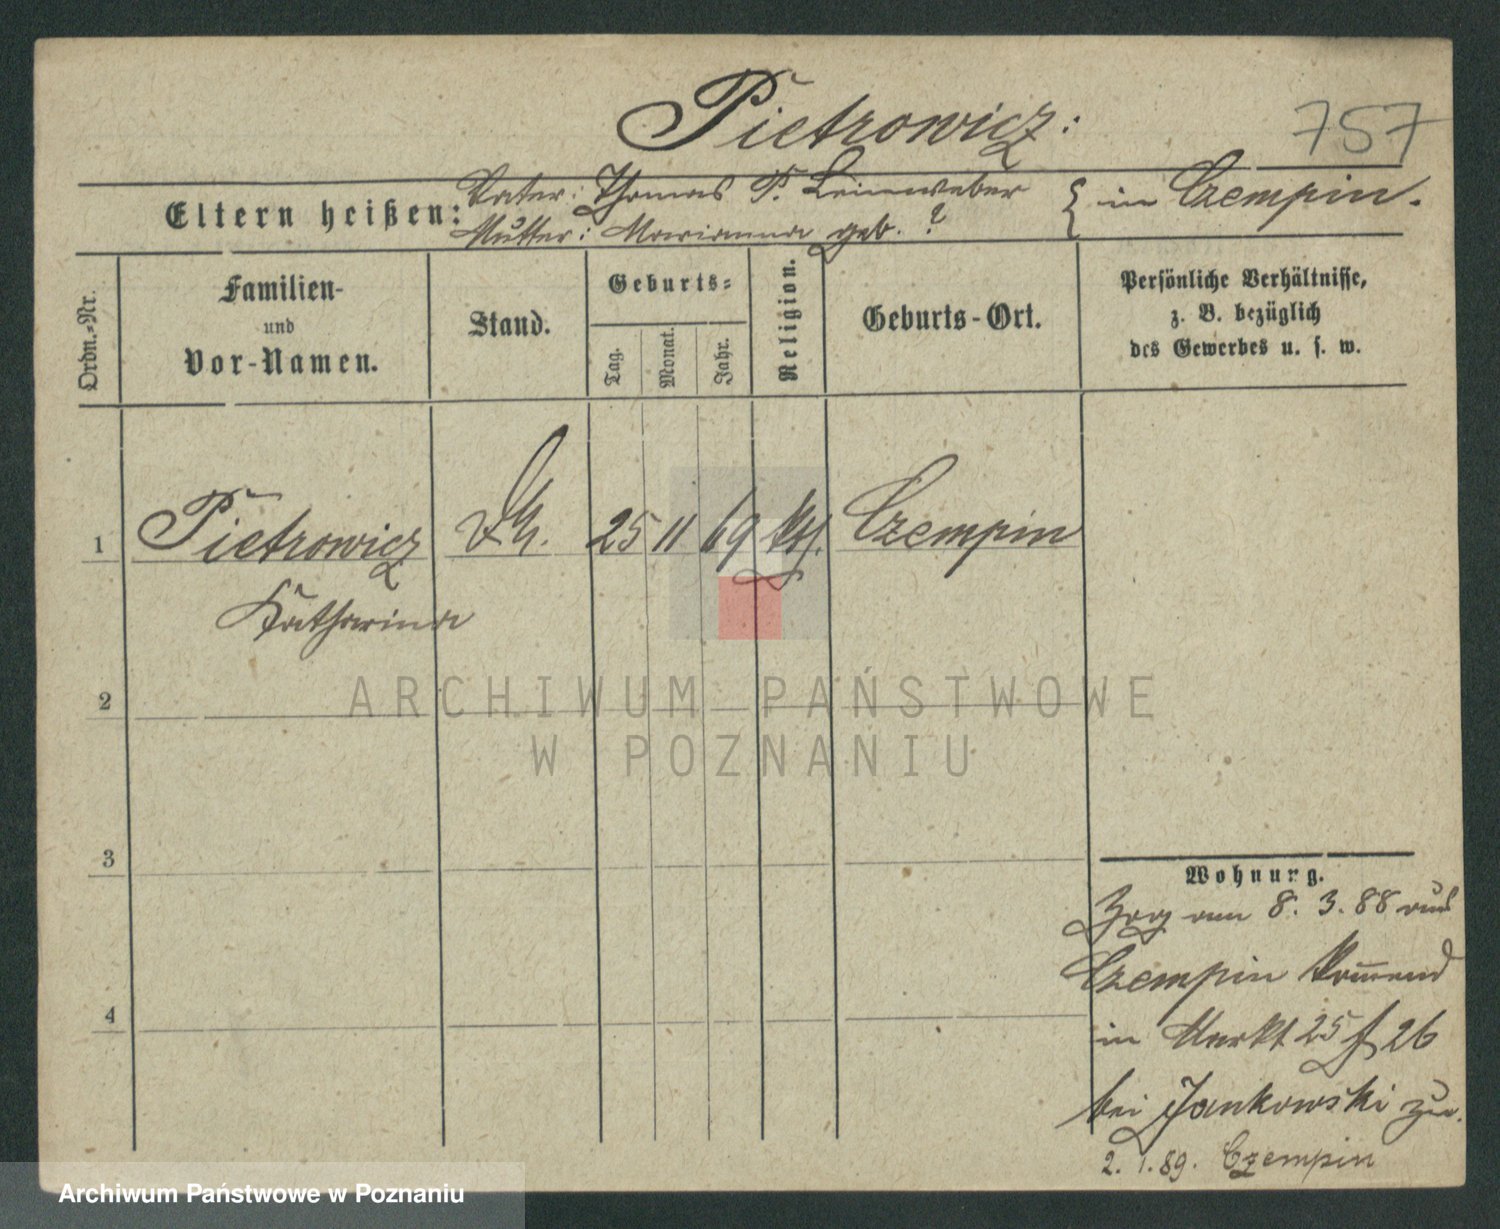 Pietrowicz:
757
Eltern heißen:
Vater: Thomas P. Leinweber
Mutter: Marianna geb. ?
} in Czempin.
Ordn.-Nr.
Familien-
und
Vor-Namen.
Stand.
Geburts-
Tag.
Monat.
Jahr.
Religion.
Geburts-Ort.
Persönliche Verhältnisse,
z. B. bezüglich
des Gewerbes u. s. w.
1 Pietrowicz 25 11 69 kth. Czempin
Katharina
2
3
4
ARCHIWUM PAŃSTWOWE
W POZNANIU
Wohnung.
Zog am 8. 3. 88 aus
Czempin kom̅end
in Markt 25/26
bei Jankowski zu.
2. 1. 89. Czempin
Archiwum Państwowe w Poznaniu